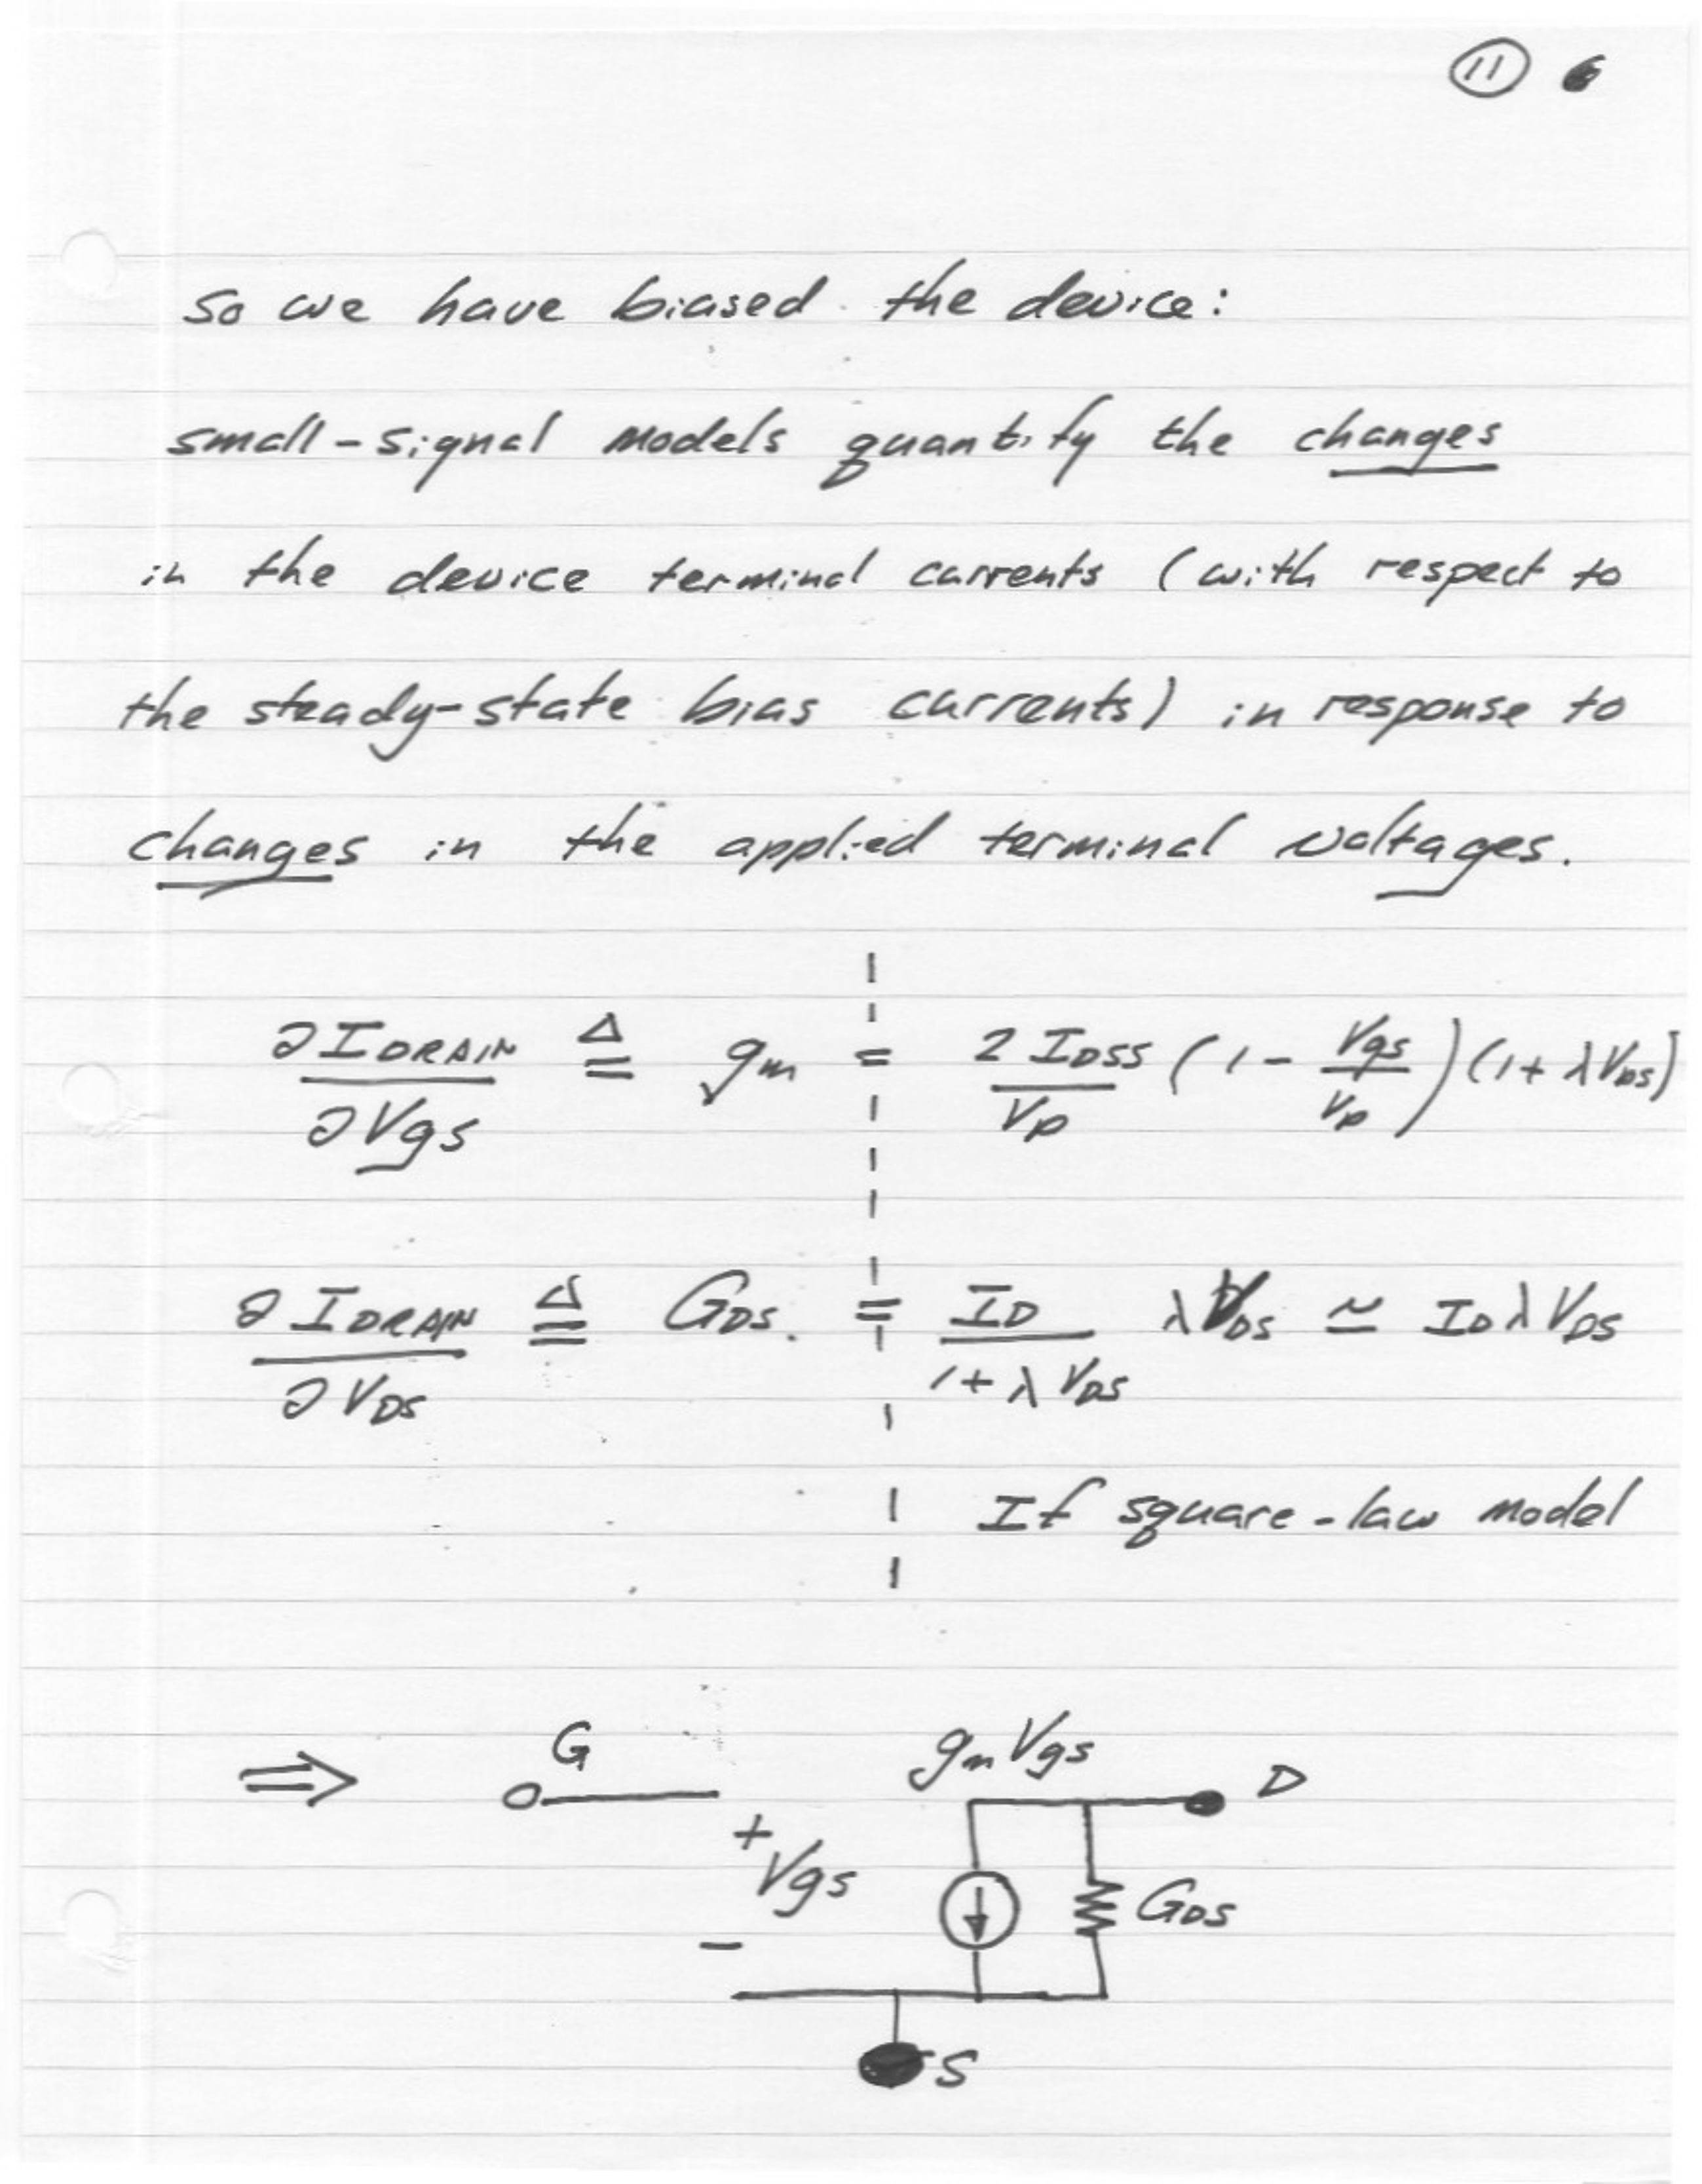 11
So we have biased the device:
small-signal models quantify the changes
in the device terminal currents (with respect to
the steady-state bias currents) in response to
changes in the applied terminal voltages.
∂I_DRAIN / ∂Vgs ≜ gm = 2 I_DSS / Vp (1 - Vgs / Vp)(1 + λV_DS)
∂I_DRAIN / ∂V_DS ≜ G_DS. = I_D / 1 + λV_DS λV_DS ≃ I_D λ V_DS
If square-law model
⇒ G gmVgs D
+
Vgs G_DS
-
S